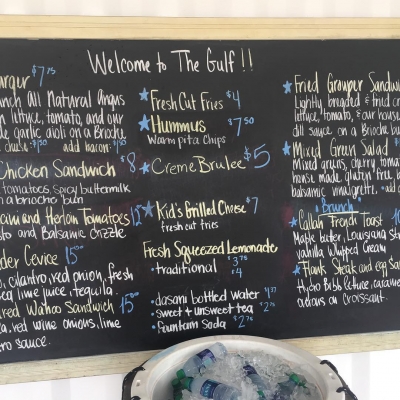 Welcome to The Gulf!!
urger $7.75
nch All Natural Angus
lettuce, tomato, and our
e garlic aioli on a Brioche
cheese: $1.50 add bacon: $1.50
Chicken Sandwich $8
tomatoes, spicy buttermilk
n a brioche bun
and Heirloom Tomatoes 12
sto and Balsamic drizzle
der Cevice 15.00
, cilantro, red onion, fresh
lime juice, tequila.
red Wahoo Sandwich 15.00
a, red wine onions, lime
ro sauce.
Fresh Cut Fries $4
Hummus $7.50
Warm pita Chips
Creme Brulee $5
Kid's Grilled Cheese $7
fresh cut fries
Fresh Squeezed Lemonade
• traditional $3.75
$4
• dasani bottled water
• sweet & unsweet tea
• fountain soda
Fried Grouper Sandw
Lightly breaded & fried
lettuce, tomato, & our house
dill sauce on a Brioche bu
Mixed Green Salad
Mixed greens, cherry tomato
house made, gluten free, b
balsamic vinaigrette.
Brunch
Callah French Toast 10
Maple butter, Louisiana
vanilla whipped Cream
Steak and egg San
Hydro Bibb lettuce, carame
onions on croissant.